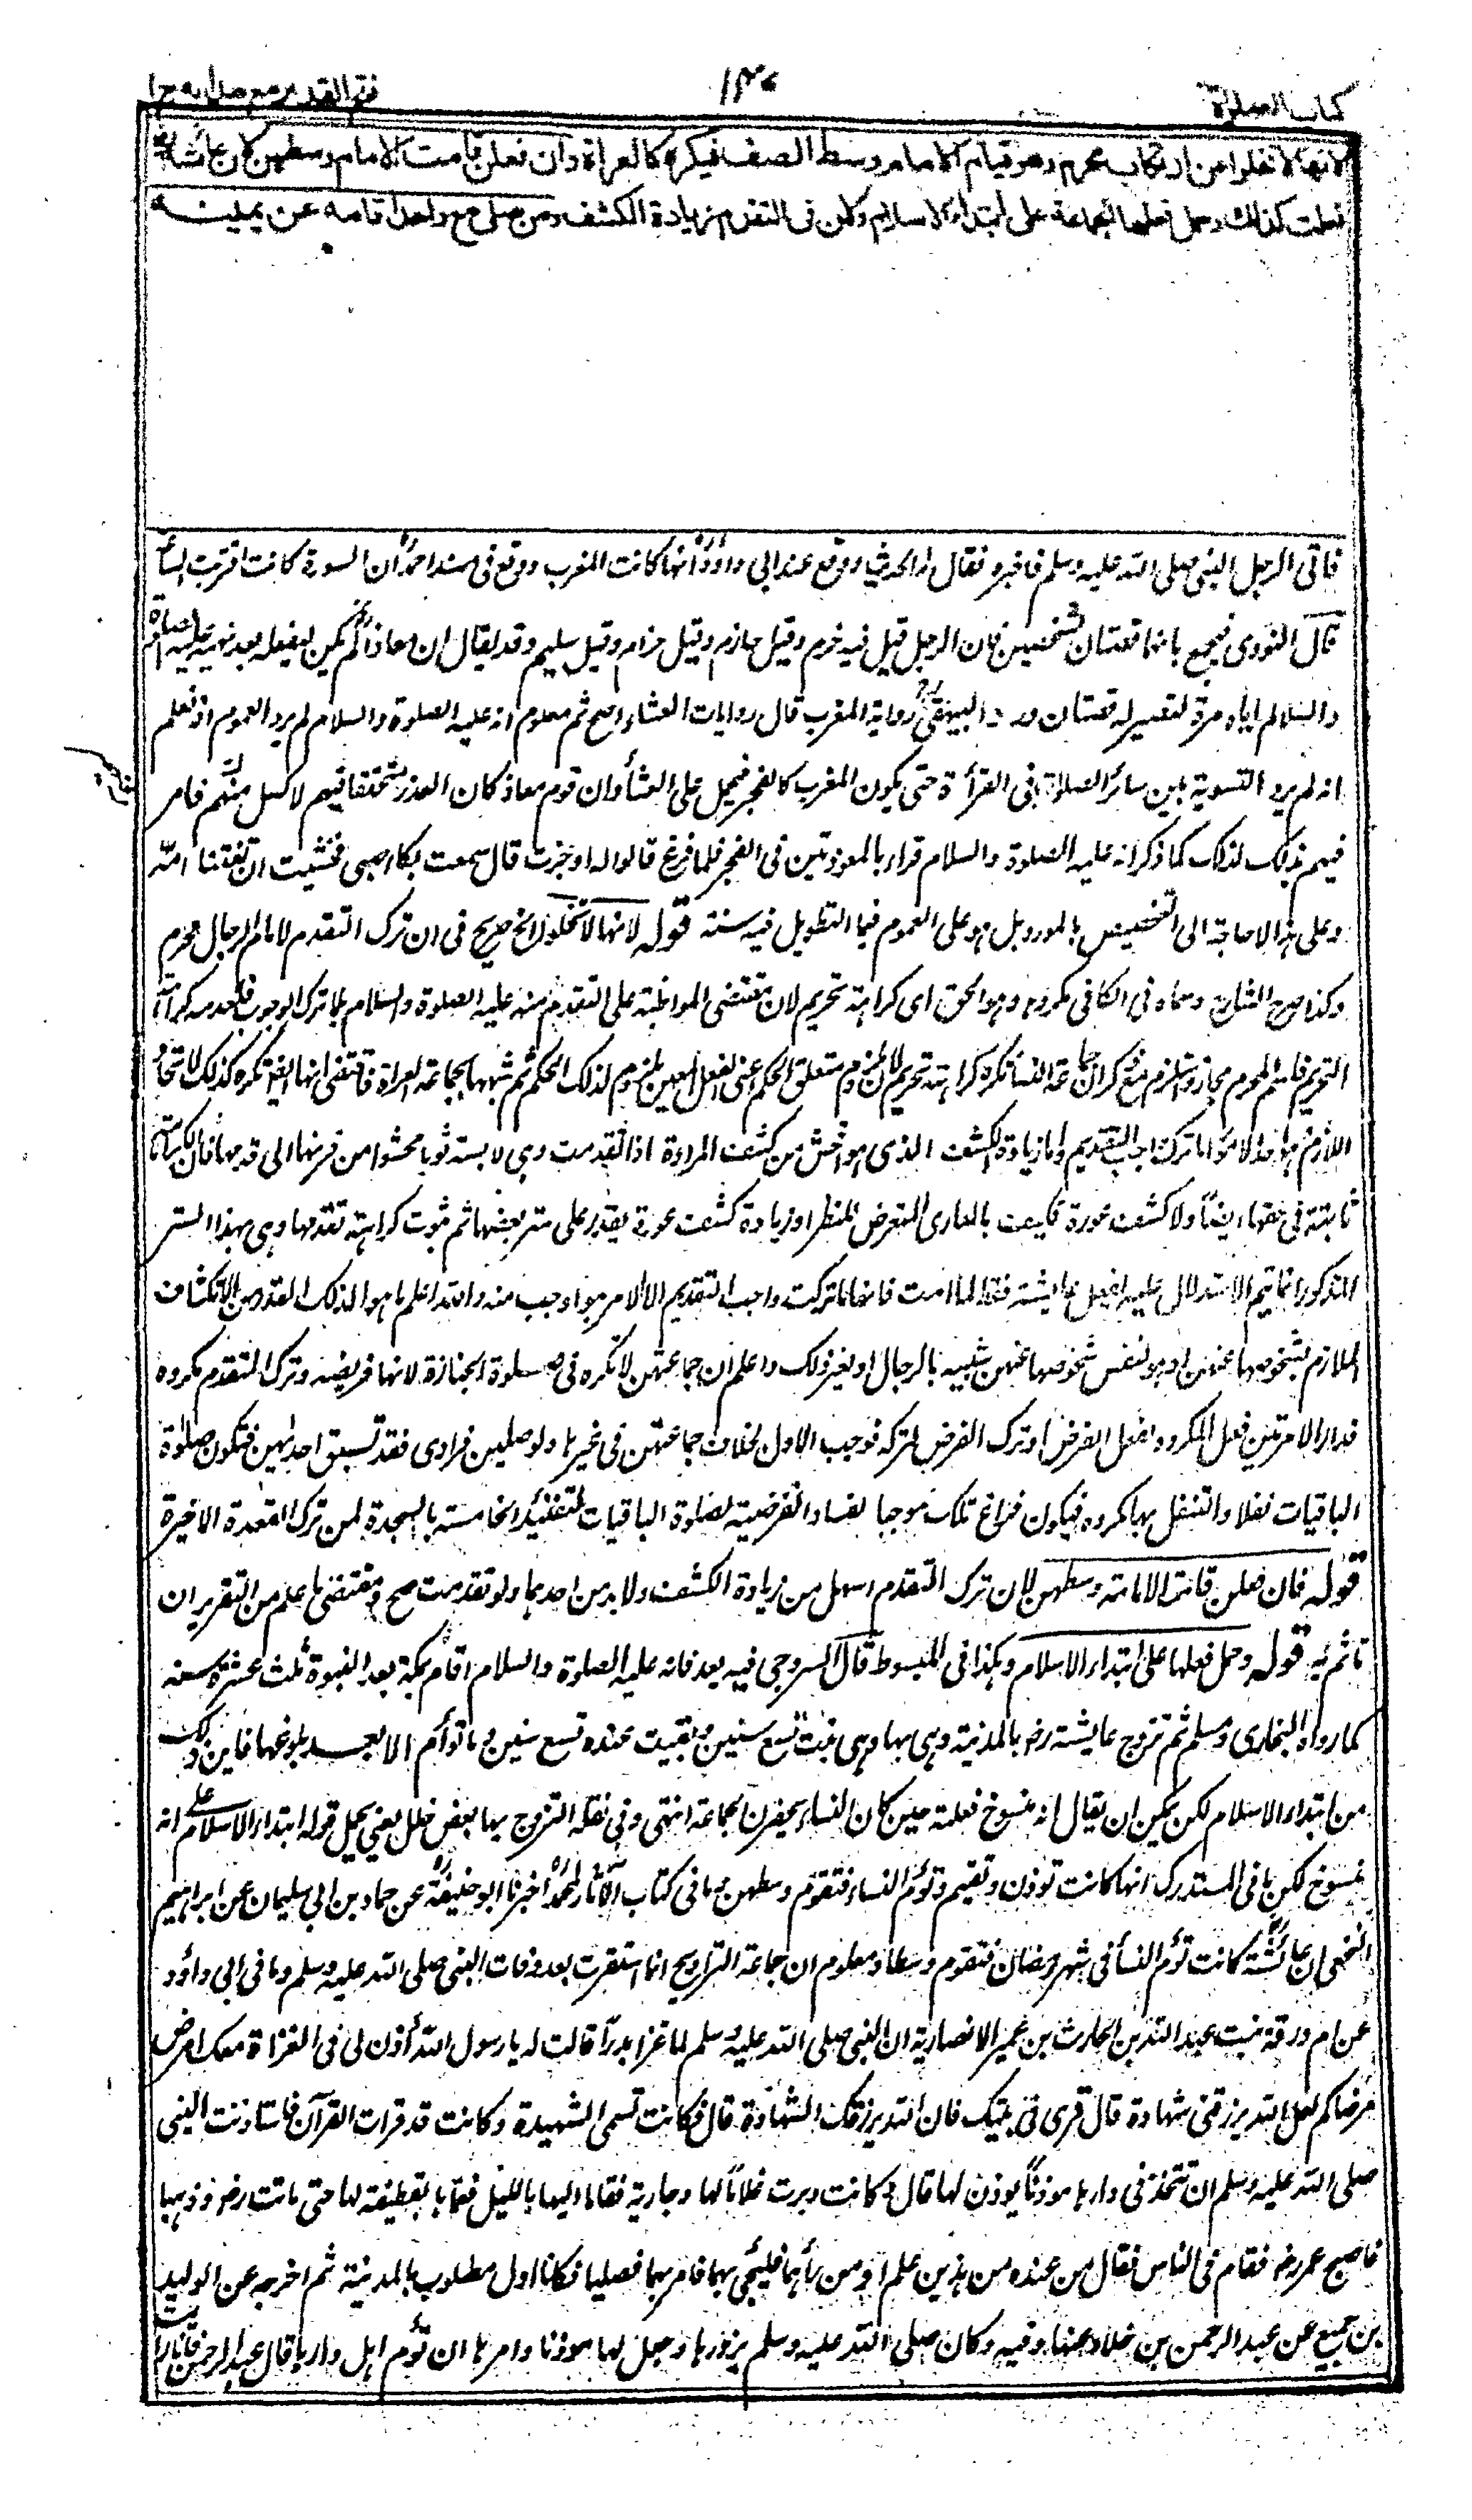 كتاب الصلوة
فتح القدير مع هدايه ج ا
لانها لا تخلوا من ارتكاب محرم وهو قيام الامام وسط الصف فيكره كالعراة وان فعلن قامت الامام وسطهن لان عائشة
فعلت كذلك وحمل فعلها الجماعة على ابتداء الاسلام ولان فى التقدم زيادة الكشف ومن صلى مع واحد اقامه عن يمينه
فاتى الرجل النبى صلى الله عليه وسلم فاخبره فقال له الحديث ووقع عند ابى داود انها كانت المغرب ووقع فى مسند احمد ان السورة كانت اقتربت الساعة
قال النووى فيجمع بانهما قصتان لشخصين فان الرجل قيل فيه حزم وقيل حازم وقيل حزام وقيل سليم وقد يقال ان معاذا لم يكن ليفعله بعد نهيه عليه الصلوة
والسلام اياه مرة لتصير له قصتان ورد البيهقى رواية المغرب قال روايات العشاء اصح ثم معلوم انه عليه الصلوة والسلام لم يرد العموم اذ نعلم
انه لم يرد التسوية بين سائر الصلوات فى القرأة حتى يكون المغرب كالفجر فيحمل على العشاء وان قوم معاذ كان العذر متحققا فيهم لا كسل منهم فامر
فيهم بذلك لذلك كما ذكر انه عليه الصلوة والسلام قراء بالمعوذتين فى الفجر فلما فرغ قالوا له اوجزت قال سمعت بكاء صبى فخشيت ان تفتتن امه
وعلى هذا لا حاجة الى التخصيص بالمورد بل هو على العموم فيما التطويل فيه سنة قوله لانها لا تخلو الخ صريح فى ان ترك التقدم لامام الرجال محرم
وكذا صرح الشارح وسماه فى الكافى مكروها وهو الحق اى كراهة تحريم لان مقتضى المواظبة على التقدم منه عليه الصلوة والسلام بلا ترك الوجوب فلعدمه كراهة
التحريم فاسم المحرم مجاز واستلزم منع كران جماعة النساء تكره كراهة تحريم لان ملزوم متعلق الحكم اعنى الفعل المعين ملزوم لذلك الحكم ثم شبهها بجماعة العراة فاقتضى انها ايضا تكره كذلك لاتحاد
اللازم وهو احد الامرين اما ترك واجب التقديم واما زيادة الكشف الذى هو افحش من كشف المرادة اذا تقدمت وهى لابسة ثوبا محشوا من قرنها الى قدمها فان الكراهة
ثابتة فى حقها ايضا ولا كشف عورة فكيف بالعارى المتعرض للنظر او زيادة كشف عورة يقدر على ستر بعضها ثم ثبوت كراهة تقدمها وهى بهذا الستر
المذكور انما يتم الاستدلال عليه بفعل عايشة فقط لما امت فانها ما تركت واجب التقديم الا لامر هو اوجب منه والله اعلم ما هو الذلك القدر من الانكشاف
اللازم بشخوصها عنهن او هو لنفس شخوصها عنهن شبيه بالرجال او لغير ذلك واعلم ان جماعتهن لا تكره فى صلوة الجنازة لانها فريضة وترك التقدم مكروه
فدار الامر بين فعل المكروه لفعل الفرض او ترك الفرض لتركه فوجب الاول بخلاف جماعتهن فى غيرها ولو صلين فرادى فقد تسبق احديهن فتكون صلوة
الباقيات نفلا والتنفل بها مكروه فيكون فراغ تلك موجبا لفساد الفرضية لصلوة الباقيات كتقييد الخامسة بالسجدة لمن ترك القعدة الاخيرة
قوله فان فعلن قامت الامامة وسطهن لان ترك التقدم اسهل من زيادة الكشف ولا بد من احدهما ولو تقدمت صح ومقتضى ما علم من التقرير ان
تاثم به قوله وحمل فعلها على ابتداء الاسلام وهكذا فى المبسوط قال السروجى فيه بعد فانه عليه الصلوة والسلام اقام بمكة بعد النبوة ثلث عشرة سنة
كما رواه البخارى ومسلم ثم تزوج عايشة رض بالمدينة وبنى بها وهى بنت تسع سنين وبقيت عنده تسع سنين وما تؤم الا بعد بلوغها فاين ذلك
من ابتداء الاسلام لكن يمكن ان يقال انه منسوخ فعلته حين كان النساء يحضرن الجماعة انتهى وفى نقله التزوج بها بعض خلل يعنى يحمل قوله ابتداء الاسلام على انه
منسوخ لكن ما فى المستدرك انها كانت تؤذن وتقيم وتؤم النساء فتقوم وسطهن وما فى كتاب الآثار لمحمد اخبرنا ابو حنيفة عن حماد بن ابى سليمان عن ابراهيم
النخعى ان عائشة كانت تؤم النساء فى شهر رمضان فتقوم وسطا ومعلوم ان جماعة التراويح انما استقرت بعد وفات النبى صلى الله عليه وسلم وما فى ابى داؤد
عن ام ورقة بنت عبد الله بن الحارث بن عمير الانصارية ان النبى صلى الله عليه وسلم لما غزا بدرا قالت له يا رسول الله أذن لى فى الغزاة معك امرض
مرضاكم لعل الله يرزقنى شهادة قال قرى فى بيتك فان الله يرزقك الشهادة قال فكانت تسمى الشهيدة وكانت قد قرات القرآن فاستاذنت النبى
صلى الله عليه وسلم ان تتخذ فى دارها موذنا يوذن لها قال وكانت دبرت غلاما لها وجارية فقاما اليها بالليل فغماها بقطيفة لها حتى ماتت رض وذهبا
فاصبح عمر رض فقام فى الناس فقال من عنده من هذين علم او من رأهما فليجئ بهما فامر بهما فصلبا فكانا اول مصلوب بالمدينة ثم اخرجه عن الوليد
بن جميع عن عبد الرحمن بن خلاد عنها وفيه وكان صلى الله عليه وسلم يزورها وجعل لها موذنا وامرها ان تؤم اهل دارها قال عبد الرحمن فانا رايت